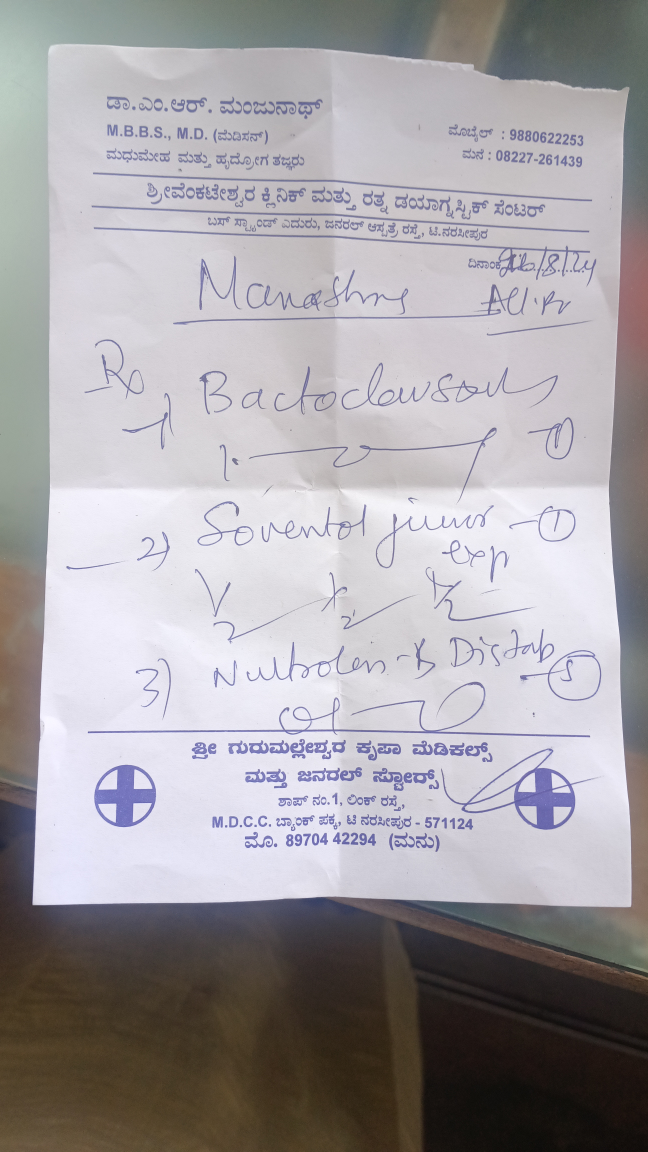 ಡಾ.ಎಂ.ಆರ್. ಮಂಜುನಾಥ್
M.B.B.S., M.D. (ಮೆಡಿಸನ್)
ಮಧುಮೇಹ ಮತ್ತು ಹೃದ್ರೋಗ ತಜ್ಞರು
ಮೊಬೈಲ್ : 9880622253
ಮನೆ : 08227-261439
ಶ್ರೀವೆಂಕಟೇಶ್ವರ ಕ್ಲಿನಿಕ್ ಮತ್ತು ರತ್ನ ಡಯಾಗ್ನಸ್ಟಿಕ್ ಸೆಂಟರ್
ಬಸ್ ಸ್ಟ್ಯಾಂಡ್ ಎದುರು, ಜನರಲ್ ಆಸ್ಪತ್ರೆ ರಸ್ತೆ, ಟಿ.ನರಸೀಪುರ
ದಿನಾಂಕ /8/24
Rx
1)
1
2) Soventol junior 1
exp
3) Distab 5
ಶ್ರೀ ಗುರುಮಲ್ಲೇಶ್ವರ ಕೃಪಾ ಮೆಡಿಕಲ್ಸ್
ಮತ್ತು ಜನರಲ್ ಸ್ಟೋರ್ಸ್
ಶಾಪ್ ನಂ.1, ಲಿಂಕ್ ರಸ್ತೆ,
M.D.C.C. ಬ್ಯಾಂಕ್ ಪಕ್ಕ, ಟಿ ನರಸೀಪುರ - 571124
ಮೊ. 89704 42294 (ಮನು)